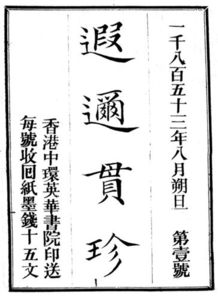 一千八百五十三年八月朔旦 第壹號
遐邇貫珍
香港中環英華書院印送
每號收回紙墨錢十五文